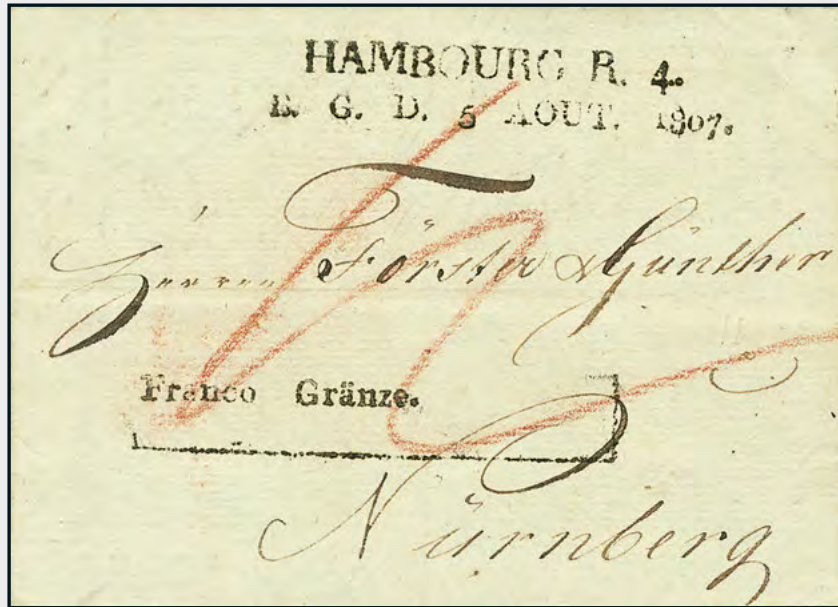 HAMBOURG R. 4.
B. G. D. 5 AOUT. 1807.
Herren Förster & Günther
Franco Gränze.
Nürnberg